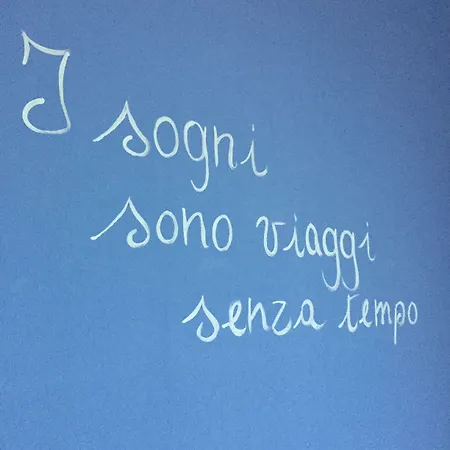 I
sogni
sono viaggi
senza tempo